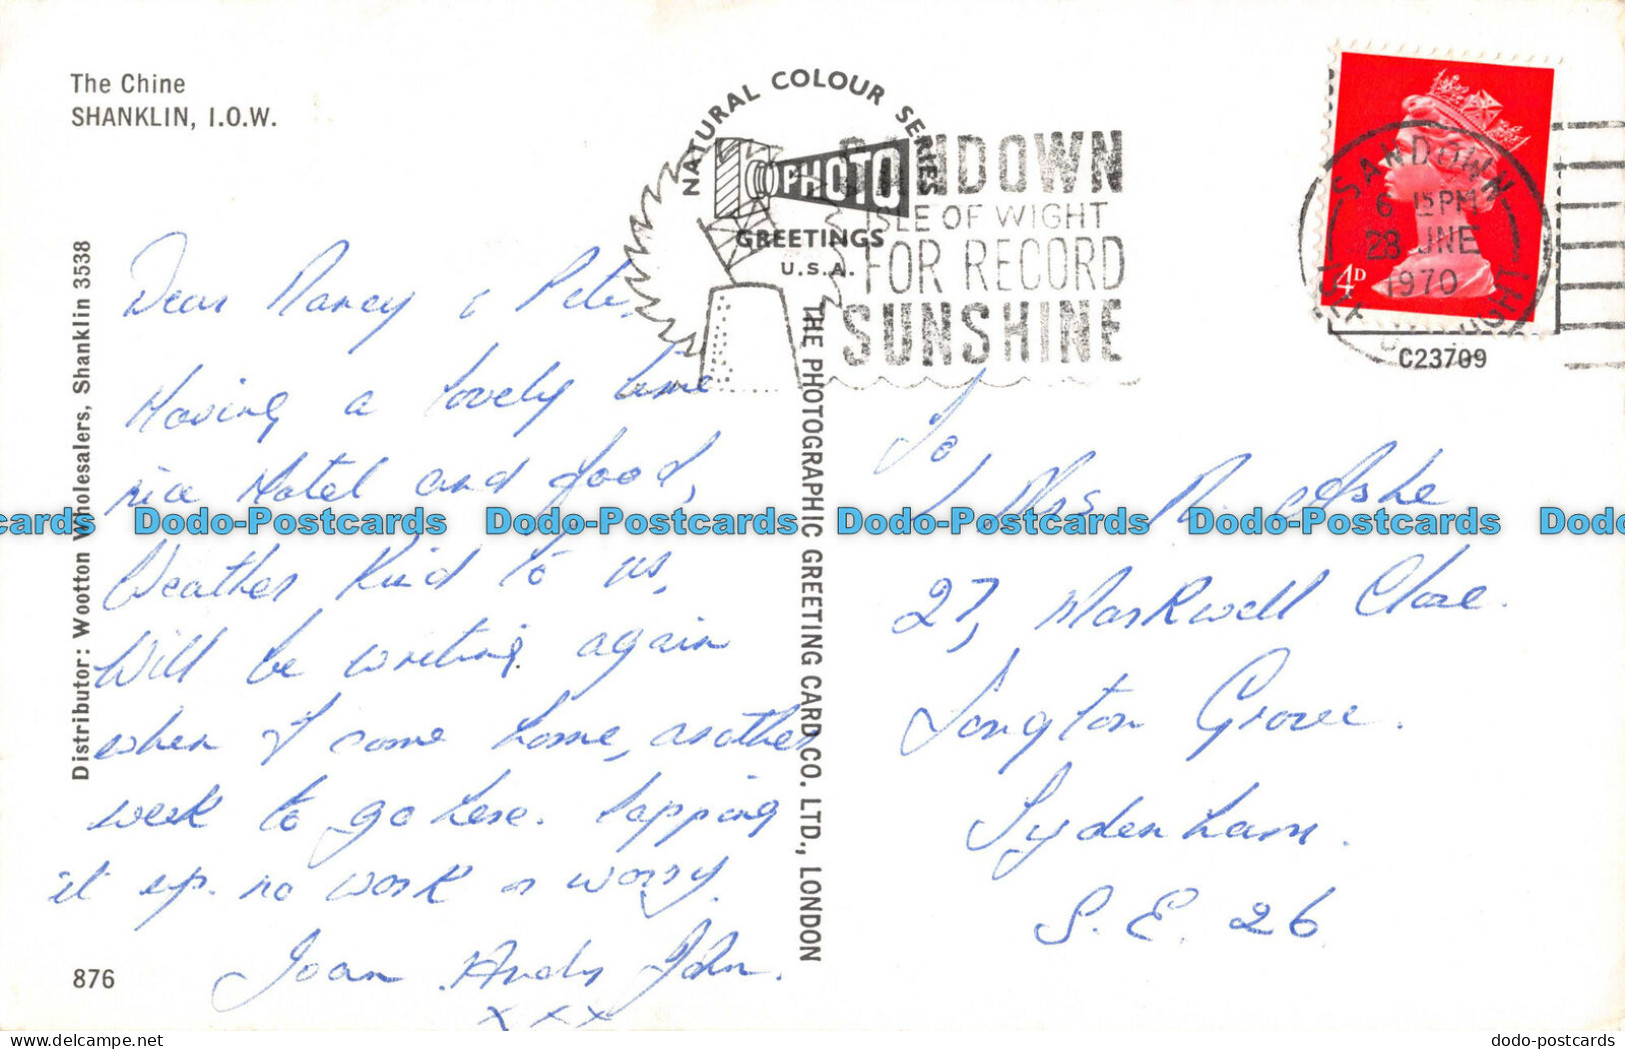 The Chine
SHANKLIN, I.O.W.
NATURAL COLOUR SERIES
PHOTO
GREETINGS
U.S.A.
SANDOWN
ISLE OF WIGHT
FOR RECORD
SUNSHINE
SANDOWN
6 15 PM
28 JNE
1970
ISLE OF WIGHT
4D
C23709
Distributor: Wootton Wholesalers, Shanklin 3538
THE PHOTOGRAPHIC GREETING CARD CO. LTD., LONDON
Dear Nancy & Pete,
Having a lovely time
nice Hotel and food,
Weather Kind to us,
Will be writing again
when I come home, another
week to go here. Lapping
it up. no work or worry.
Joan Andy John.
xxx
To,
Mrs N. Ashe
27, Markwell Close.
Longton Grove.
Sydenham.
S.E. 26
876
cards Dodo-Postcards Dodo-Postcards Dodo-Postcards Dodo-Postcards Dodo
dodo-postcards